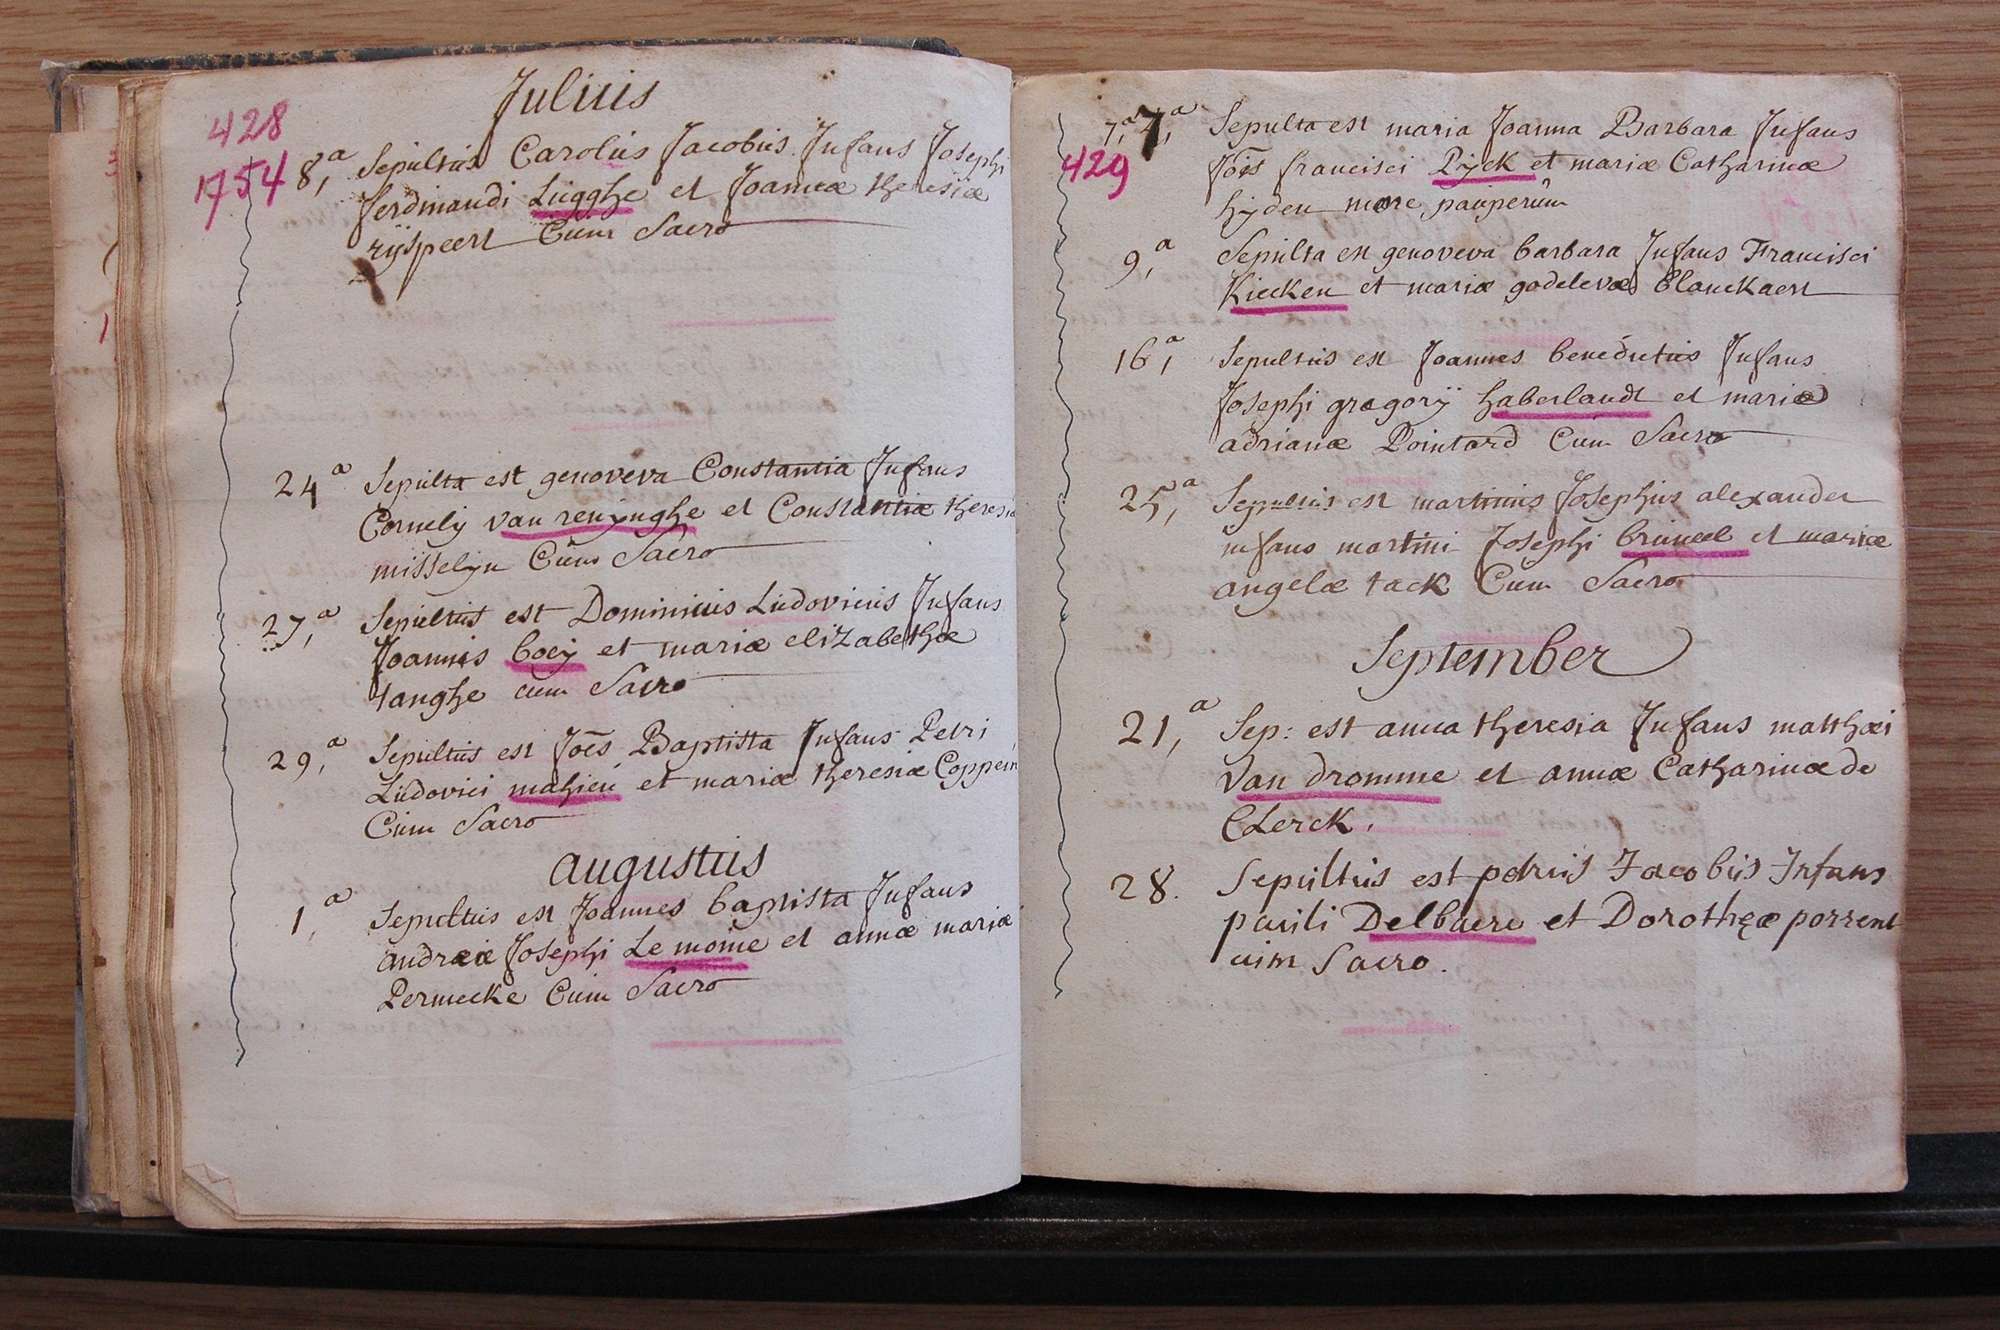 Julius
428
1754
8,a Sepultus Carolus Jacobus Infans Josephi
ferdinandi Lugghe et Joannæ theresiæ
rijspeert Cum Sacro
24a Sepulta est genoveva Constantia Infans
Cornelij van renijnghe et Constantiæ theresiæ
misselijn Cum Sacro
27,a Sepultus est Dominicus Ludovicus Infans
Joannis boeij et mariæ elizabethæ
tanghe cum Sacro
29,a Sepultus est Joēs Baptista Infans Petri
Ludovici mahieu et mariæ theresiæ Coppein
Cum Sacro
augustus
1,a Sepultus est Joannes baptista Infans
andreæ Josephi Le moine et annæ mariæ
Permeeke Cum Sacro
7,a 7,a Sepulta est maria Joanna Barbara Infans
429
Joēs francisci Rijck et mariæ Catharinæ
hijden more pauperum
9,a Sepulta est genoveva barbara Infans Francisci
Kiecken et mariæ godelevæ blanckaert
16,a Sepultus est Joannes benedictus Infans
Josephi gregorij haberlandt et mariæ
adrianæ Pointard Cum Sacro
25,a Sepultus est martinus Josephus alexander
infans martini Josephi bruneel et mariæ
angelæ tack Cum Sacro
September
21,a Sep: est anna theresia Infans matthæi
van dromme et annæ Catharinæ de
CLerck.
28. Sepultus est petrus Jacobus Infans
pauli Delbaere et Dorotheæ porrent
cum Sacro.